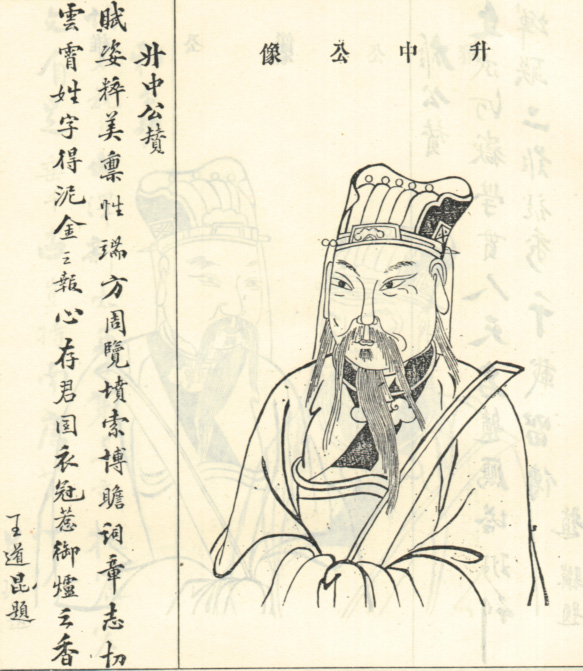 升中公像
升中公贊
賦姿粹美稟性端方周覽墳索博贍詞章志切
雲霄姓字得泥金之報心存君國衣冠惹御爐之香
王道昆題